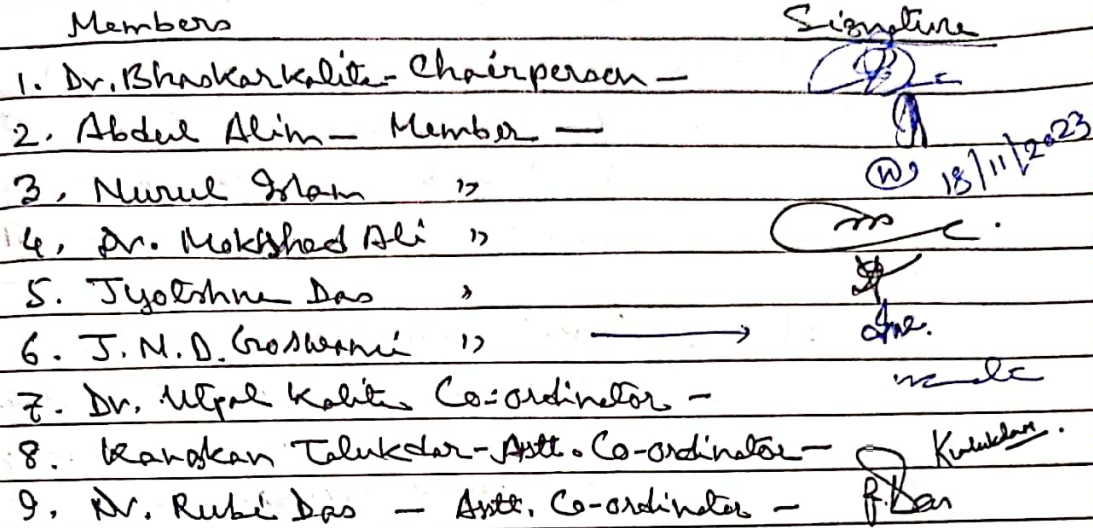 Members Signature
1. Dr. Bhaskar Kalita - Chairperson -
2. Abdul Alim - Member -
3. Nurul Islam "
18/11/2023
4. Dr. Mokshed Ali "
5. Jyotshna Das "
6. J.N.D. Goswami " →
7. Dr. Utpal Kalita Co-ordinator -
8. Kangkan Talukdar - Astt. Co-ordinator - Ktalukdar.
9. Dr. Rubi Das - Astt. Co-ordinator - R. Das